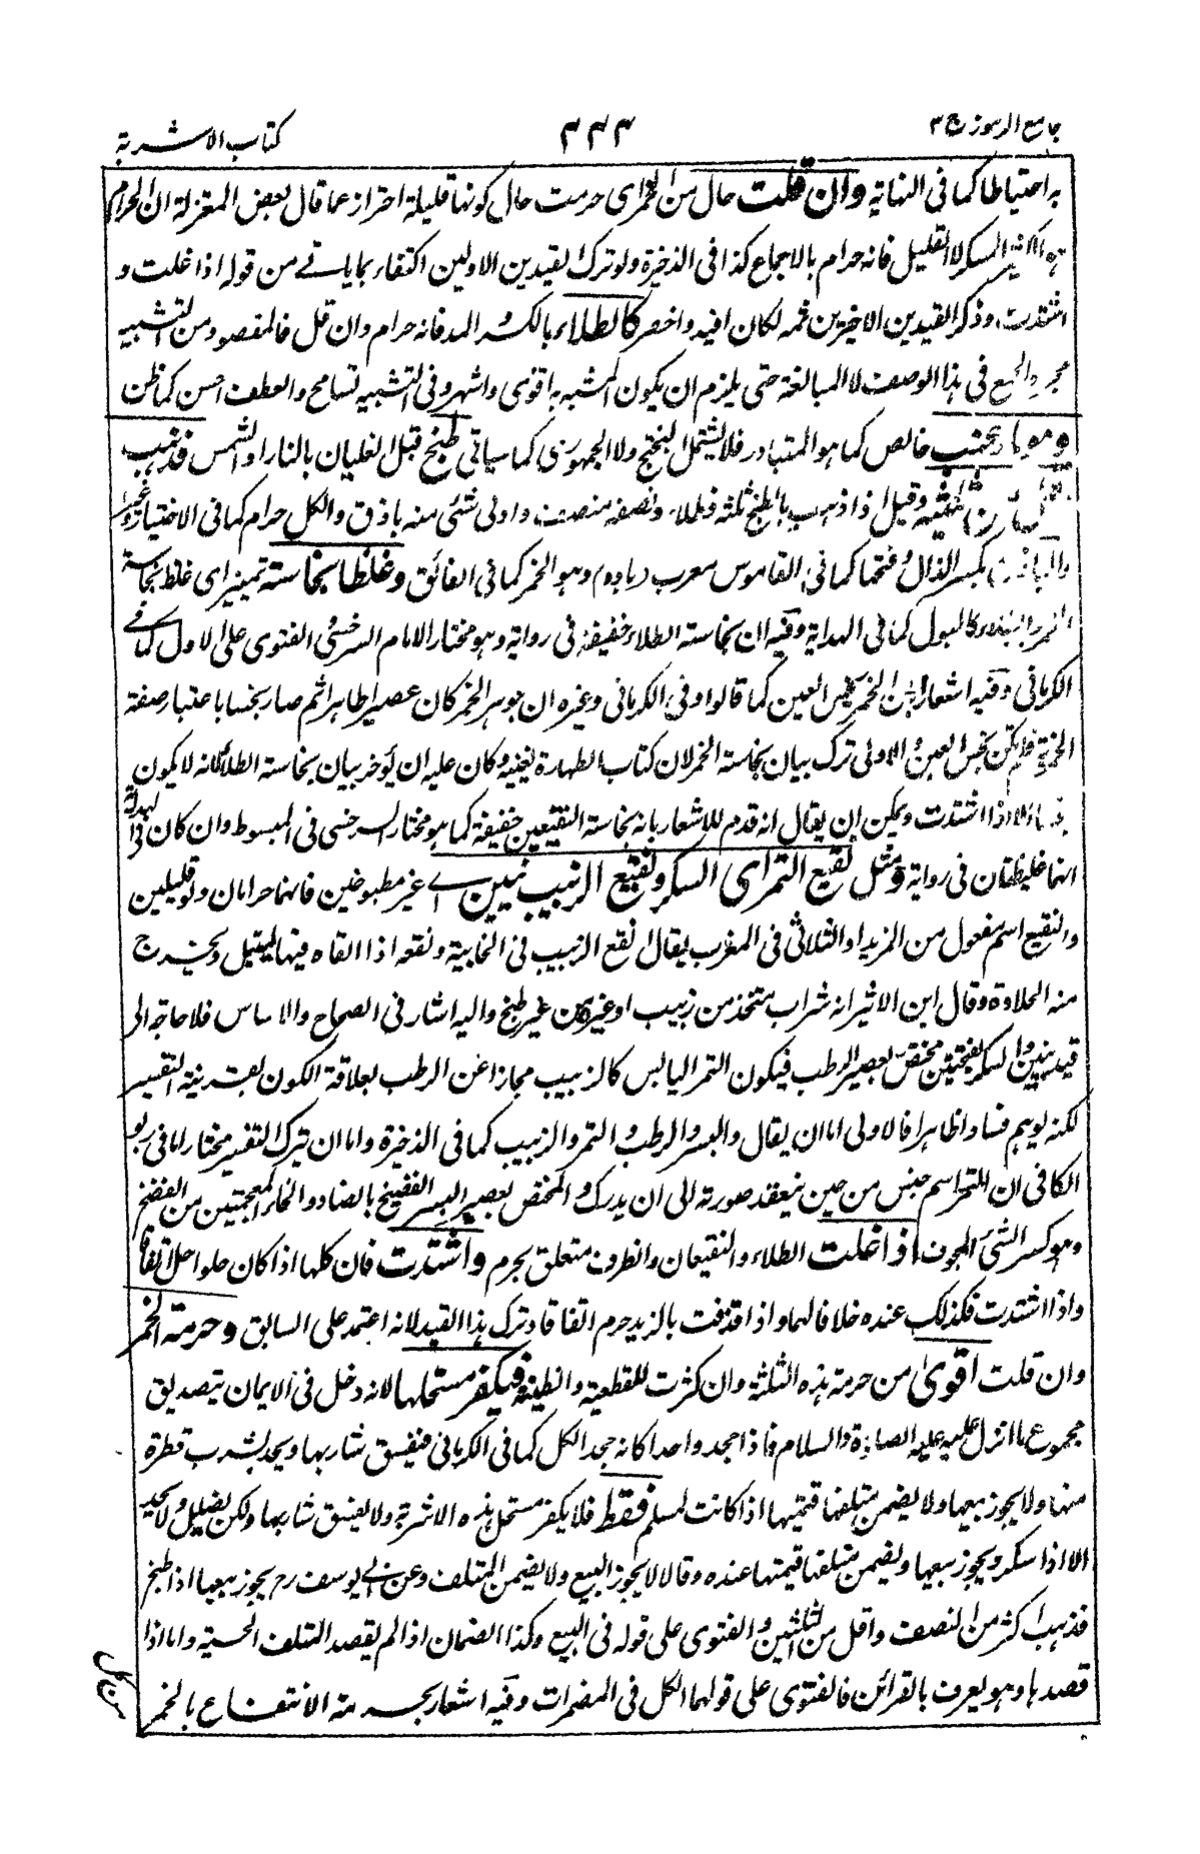 جامع الرموز ج ٣
٣٣٣
كتاب الاشربة
به احتياطا كما فى النهاية وان قلت حال من الخمر اى حرمت حال كونها قليلة احتراز عما قال بعض المعتزلة ان الحرام
هو الكثير المسكر لا القليل فانه حرام بالاجماع كذا فى الذخيرة ولو ترك القيدين الاولين اكتفاء بما ياتى من قوله اذا غلت و
اشتدت وذكر القيدين الاخيرين ثمه لكان افيد واخصر كالطلاء بالكسر والمد فانه حرام وان قل فالمقصود من التشبيه
مجرد الجمع فى هذا الوصف لا المبالغة حتى يلزم ان يكون المشبه به اقوى واشهر وفى التشبيه تسامح والعطف احسن كما ظن
وهو ماء عنب خالص كما هو المتبادر فلا يشتمل البختج ولا الجمهورى كما سياتى طبخ قبل الغليان بالنار او الشمس فذهب
اقل من ثلثيه وقيل اذا ذهب بالطبخ ثلثه فطلاء ونصفه فمنصف وادنى شئى منه باذق والكل حرام كما فى الاختيار وغيره
والباذق بكسر الذال وفتحها كما فى القاموس معرب (باده) وهو الخمر كما فى الفائق وغلظا نجاسة تمييز اى غلظ نجاسة
الخمر والطلاء كالبول كما فى الهداية وفيه ان نجاسة الطلاء خفيفة فى رواية وهو مختار الامام السرخسى الفتوى على الاول كما فى
الكرمانى وفيه اشعار بان الخمر نجس العين كما قالوا وفى الكرمانى وغيره ان جوهر الخمر كان عصيرا طاهرا ثم صار نجسا باعتبار صفة
الخمرية فلم يكن نجس العين والاولى ترك بيان نجاسة الخمر لان كتاب الطهارة يغنيه وكان عليه ان يؤخر بيان نجاسة الطلاء لانه لا يكون
نجسا الا اذا اشتدت ويمكن ان يقال انه قدم للاشعار بانه نجاسة النقيعين خفيفة كما هو مختار السرخسى فى المبسوط وان كان فى الهداية
انها غليظتان فى رواية ومثل نقيع التمر اى السكر ونقيع الزبيب نيين اے غير مطبوخين فانهما حرامان ولو قليلين
والنقيع اسم مفعول من المزيد او الثلاثى فى المغرب يقال انقع الزبيب فى الخابية ونقعه اذا القاه فيها ليبتل ويخرج
منه الحلاوة وقال ابن الاثير انه شراب متخذ من زبيب او غيره من غير طبخ واليه اشار فى الصحاح والاساس فلا حاجة الى
قيد نيين والسكر بفتحتين مختص بعصير الرطب فيكون التمر اليابس كالزبيب مجازا عن الرطب بعلاقة الكون بقرينة التفسير
لكنه يوهم فسادا ظاهرا فالاولى اما ان يقال والبسر والرطب والتمر والزبيب كما فى الذخيرة واما ان يترك التفسير مختارا ما فى ربو
الكافى ان التمر اسم جنس من حين ينعقد صورته الى ان يدرك والمختص بعصير البسر الفضيخ بالضاد والخاء المعجمتين من الفضخ
وهو كسر الشئ المجوف اذا غلت الطلاء والنقيعان والظرف متعلق بحرم واشتدت فان كلها اذا كان حلوا حل اتفاقا
واذا اشتدت فكذلك عنده خلافا لهما واذا قذفت بالزبد حرم اتفاقا وترك هذا القيد لانه اعتمد على السابق وحرمة الخمر
وان قلت اقوى من حرمة هذه الثلثة وان كثرت للقطعية والظنية فيكفر مستحلها لانه دخل فى الايمان بتصديق
مجموع ما انزل عليه عليه الصلوة والسلام فاذا جحد واحدا كانه جحد الكل كما فى الكرمانى فيفسق شاربها ويحد بشرب قطرة
منها ولا يجوز بيعها ولا يضمن متلفها قيمتها اذا كانت لمسلم فقط فلا يكفر مستحل هذه الاشربة ولا يفسق شاربها ولكن يضلل ولا يحد
الا اذا سكر ويجوز بيعها ويضمن متلفها قيمتها عنده وقالا لا يجوز البيع ولا يضمن المتلف وعن ابي يوسف رح يجوز بيعها اذا طبخ
فذهب اكثر من النصف واقل من الثلثين والفتوى على قوله فى البيع وكذا الضمان اذا لم يقصد المتلف الحسبة واما اذا
قصدها وهو يعرف بالقرائن فالفتوى على قولهما الكل فى المضمرات وفيه اشعار بحرمة الانتفاع بالخمر